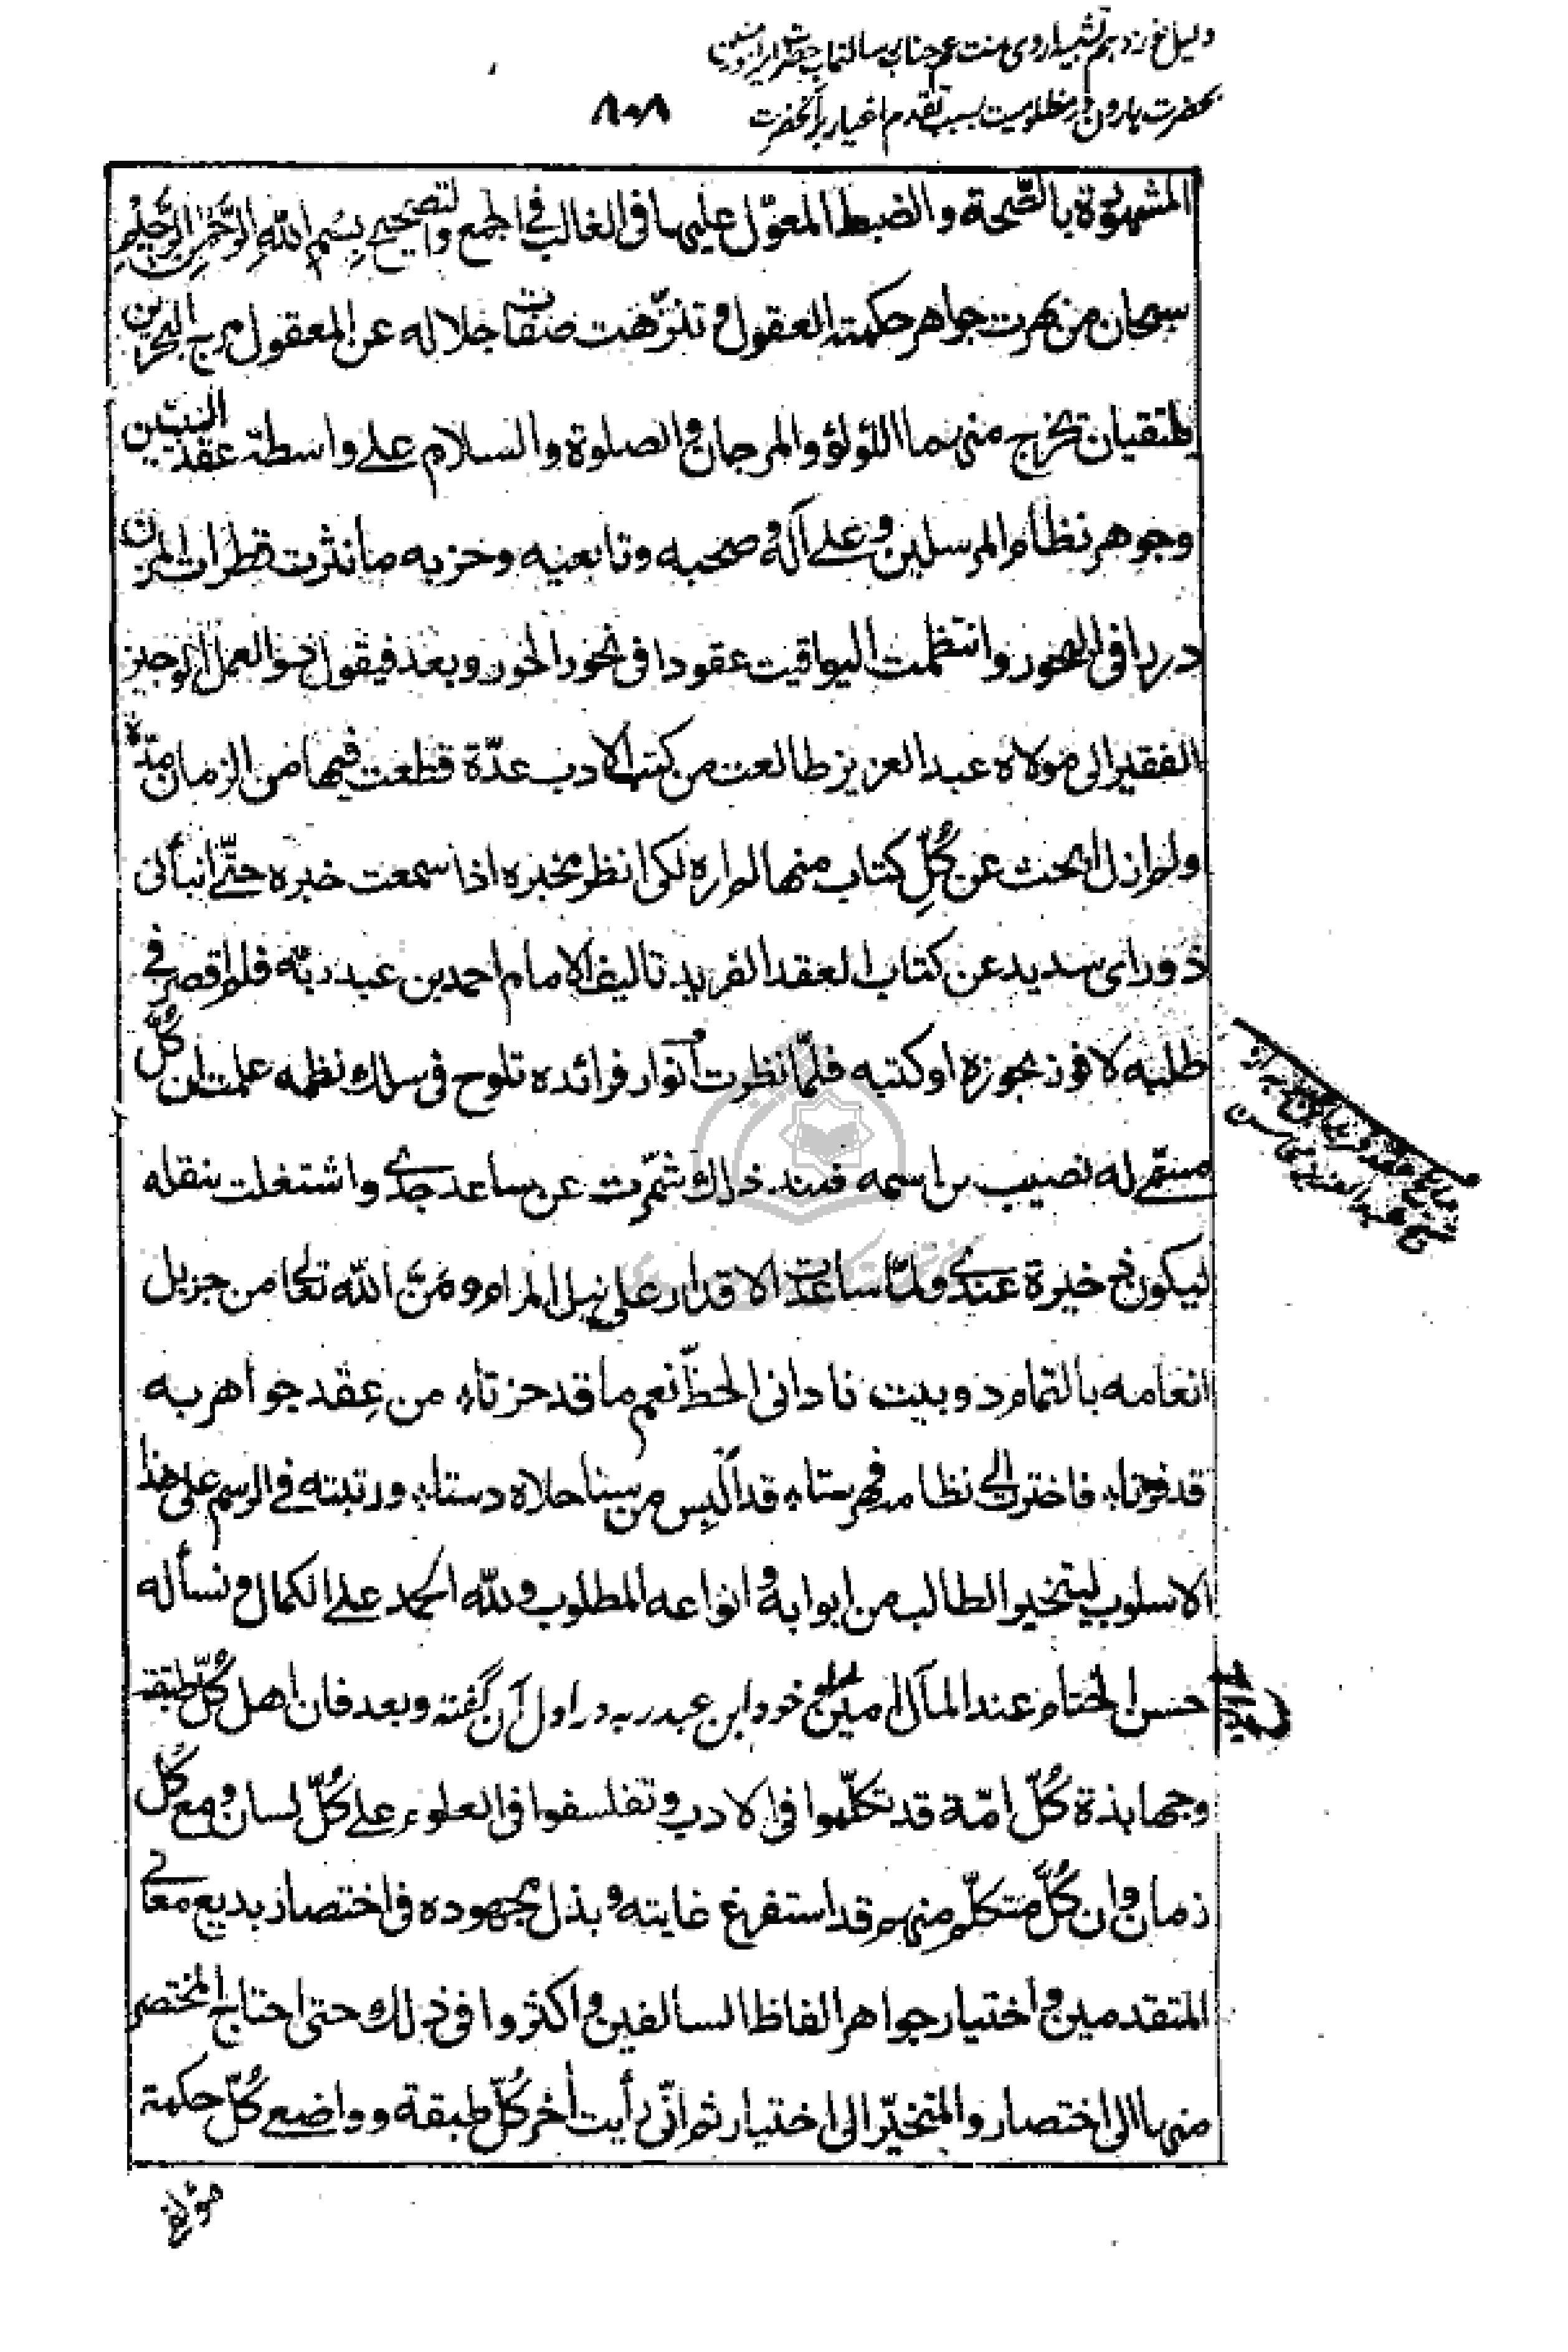 بحضرت هارون در مظلومیت بسبب تقدم اغیار بر آنحضرت
۸۰۸
المشهورة بالصّحة والضبط المعوّل علیها فی الغالب فی الجمع والتصحیح بِسْمِ اللهِ الرَّحْمٰنِ الرَّحِیْمِ
سبحان من بهرت جواهر حکمته العقول و تنزّهت صفات جلاله عن المعقول مرج البحرین
یلتقیان تخرج منهما اللؤلؤ والمرجان والصلوة والسلام علی واسطة عقد النبیین
وجوهر نظام المرسلین وعلی آله وصحبه وتابعیه وحزبه مانثرت قطرات المزن
دررا فی البحور وانتظمت الیواقیت عقودا فی نحور الحور وبعد فیقول ذو العمل الوجیز
الفقیر الی مولاه عبد العزیز طالعت من کتب الادب عدّة قطعت فیها من الزمان مدّة
ولم ازل ابحث عن کُلِّ کتاب منها لم اره لکی انظر مخبره اذا سمعت خبره حتّی انبأنی
ذو رای سدید عن کتاب العقد الفرید تالیف الامام احمد بن عبد ربّه فلم اقصر فی
طلبه لافوز بحوزه او کتبه فلمّا نظرت انوار فرائده تلوح فی سلك نظمه علمت ان کُلّ
مسمّی له نصیب من اسمه فعند ذلك شمّرت عن ساعد جدّی واشتغلت بنقله
لیکون ذخیرة عندی ولمّا ساعدت الاقدار علی نیل المرام ومنّ الله تعالی من جزیل
انعامه بالتمام دوبیت نادانی الحظّ نعم ما قد حزتاه من عِقد جواهر به
قد فزتاه فاخترت الی نظامه فهرستاه قد ألبس من سنا حلاه دستاه ورتبته فی الرسم علی هذا
الاسلوب لیتخیر الطالب من ابوابه وانواعه المطلوب ولله الحمد علی الکمال ونسأله
حسن الختام عند المآل امین خود ابن عبد ربه در اول آن گفته وبعد فان اهل کُلّ طبقة
وجهابذة کُلّ امّة قد تکلّموا فی الادب وتفلسفوا فی العلوم علی کُلّ لسان ومع کُل
زمان وان کُلّ متکلّم منهم قد استفرغ غایته وبذل مجهوده فی اختصار بدیع معانی
المتقدمین واختیار جواهر الفاظ السالفین واکثروا فی ذلك حتی احتاج المختصر
منها الی اختصار والمتخیّر الی اختیار ثم انّی رأیت أخر کُلّ طبقة وواضعی کُلّ حکمة
مؤلفی